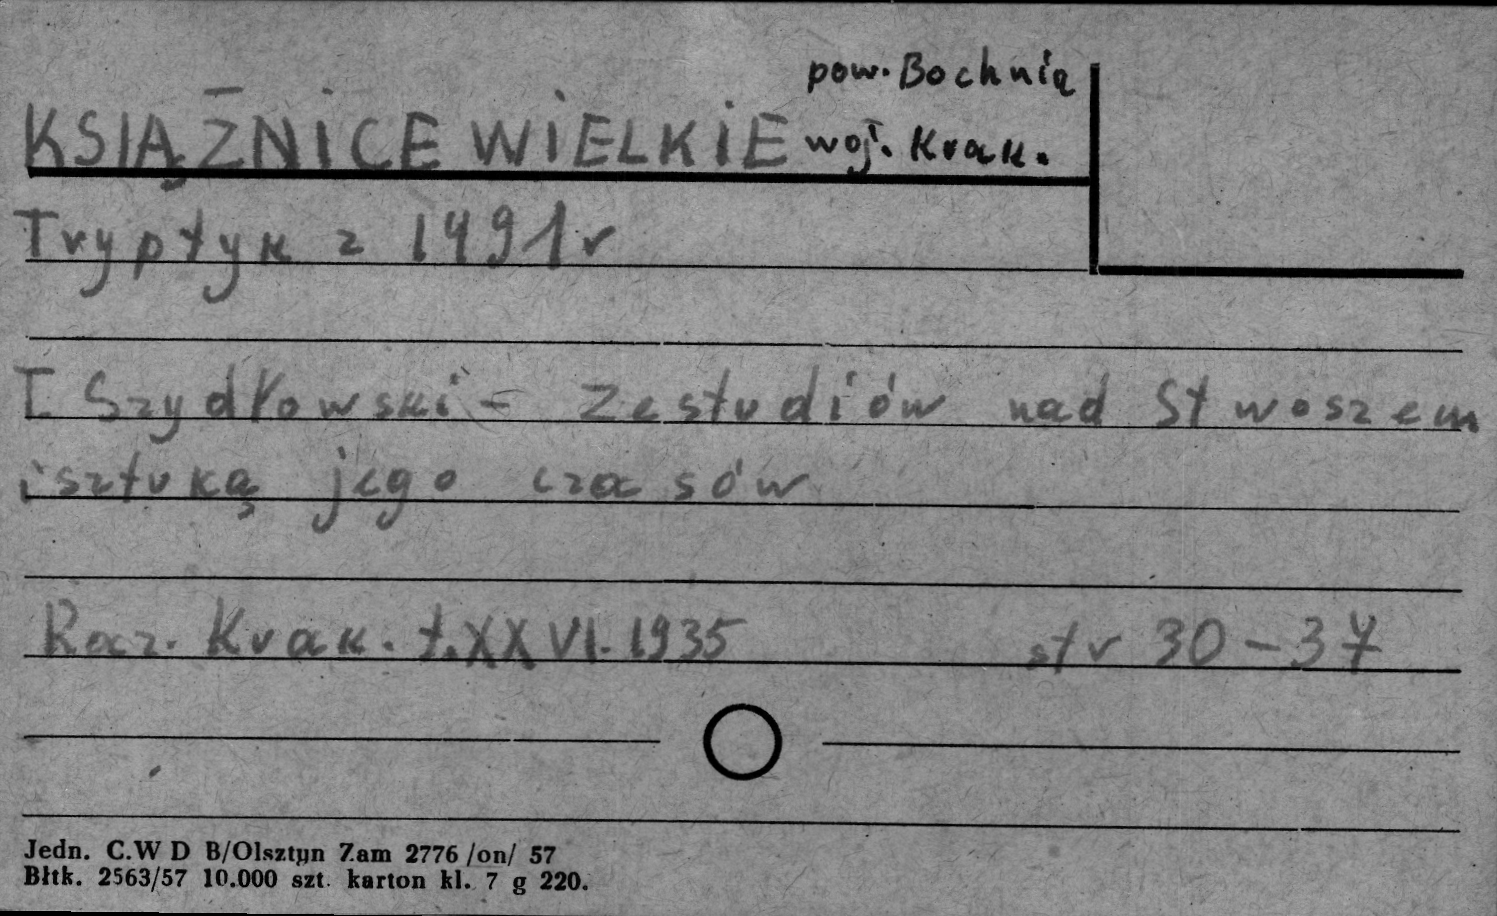 pow. Bochnia
KSIĄŻNICE WIELKIE woj. Krak.
Tryptyk z 1491 r
T. Szydłowski - Ze studiów nad Stwoszem
i sztuką jego czasów
Rocz. Krak. t. XXVI. 1935 str 30-37
Jedn. C.W D B/Olsztyn Zam 2776 /on/ 57
Błtk. 2563/57 10.000 szt. karton kl. 7 g 220.